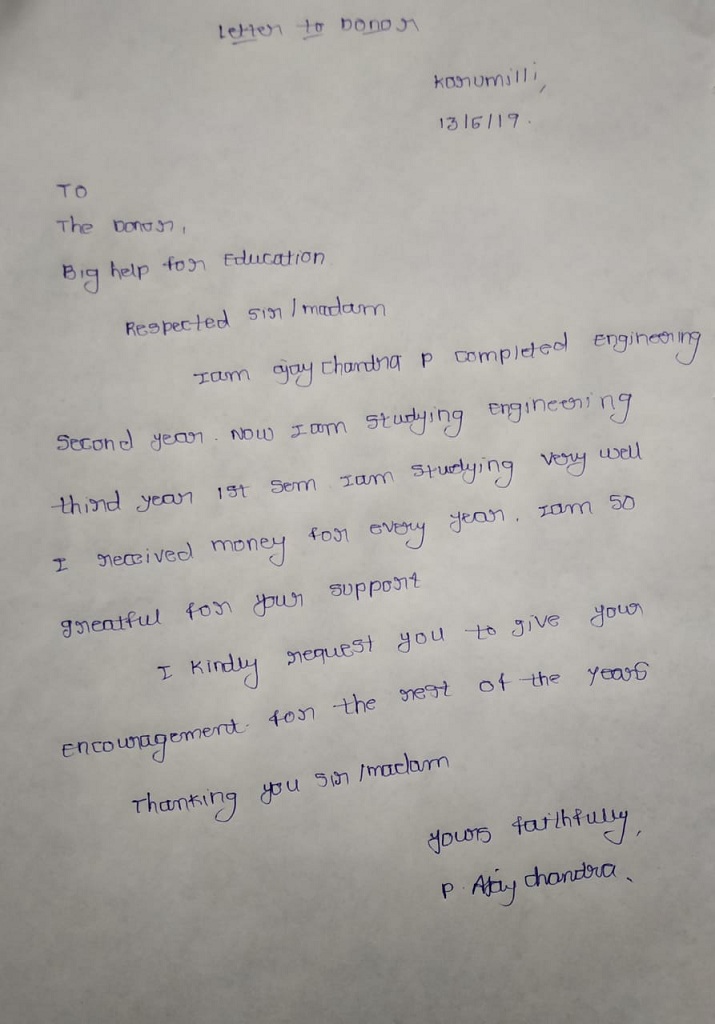 Letter to Donor
Kanumilli,
13/6/19.
TO
The Donor,
Big help for Education
Respected sir/madam
Iam ajay chandra p completed Engineering
Second year. Now Iam studying Engineering
third year 1st sem Iam studying very well
I received money for every year. Iam so
greatful for your support
I kindly request you to give your
Encouragement for the rest of the years
Thanking you sir/madam
yours faithfully,
P. Ajay chandra.